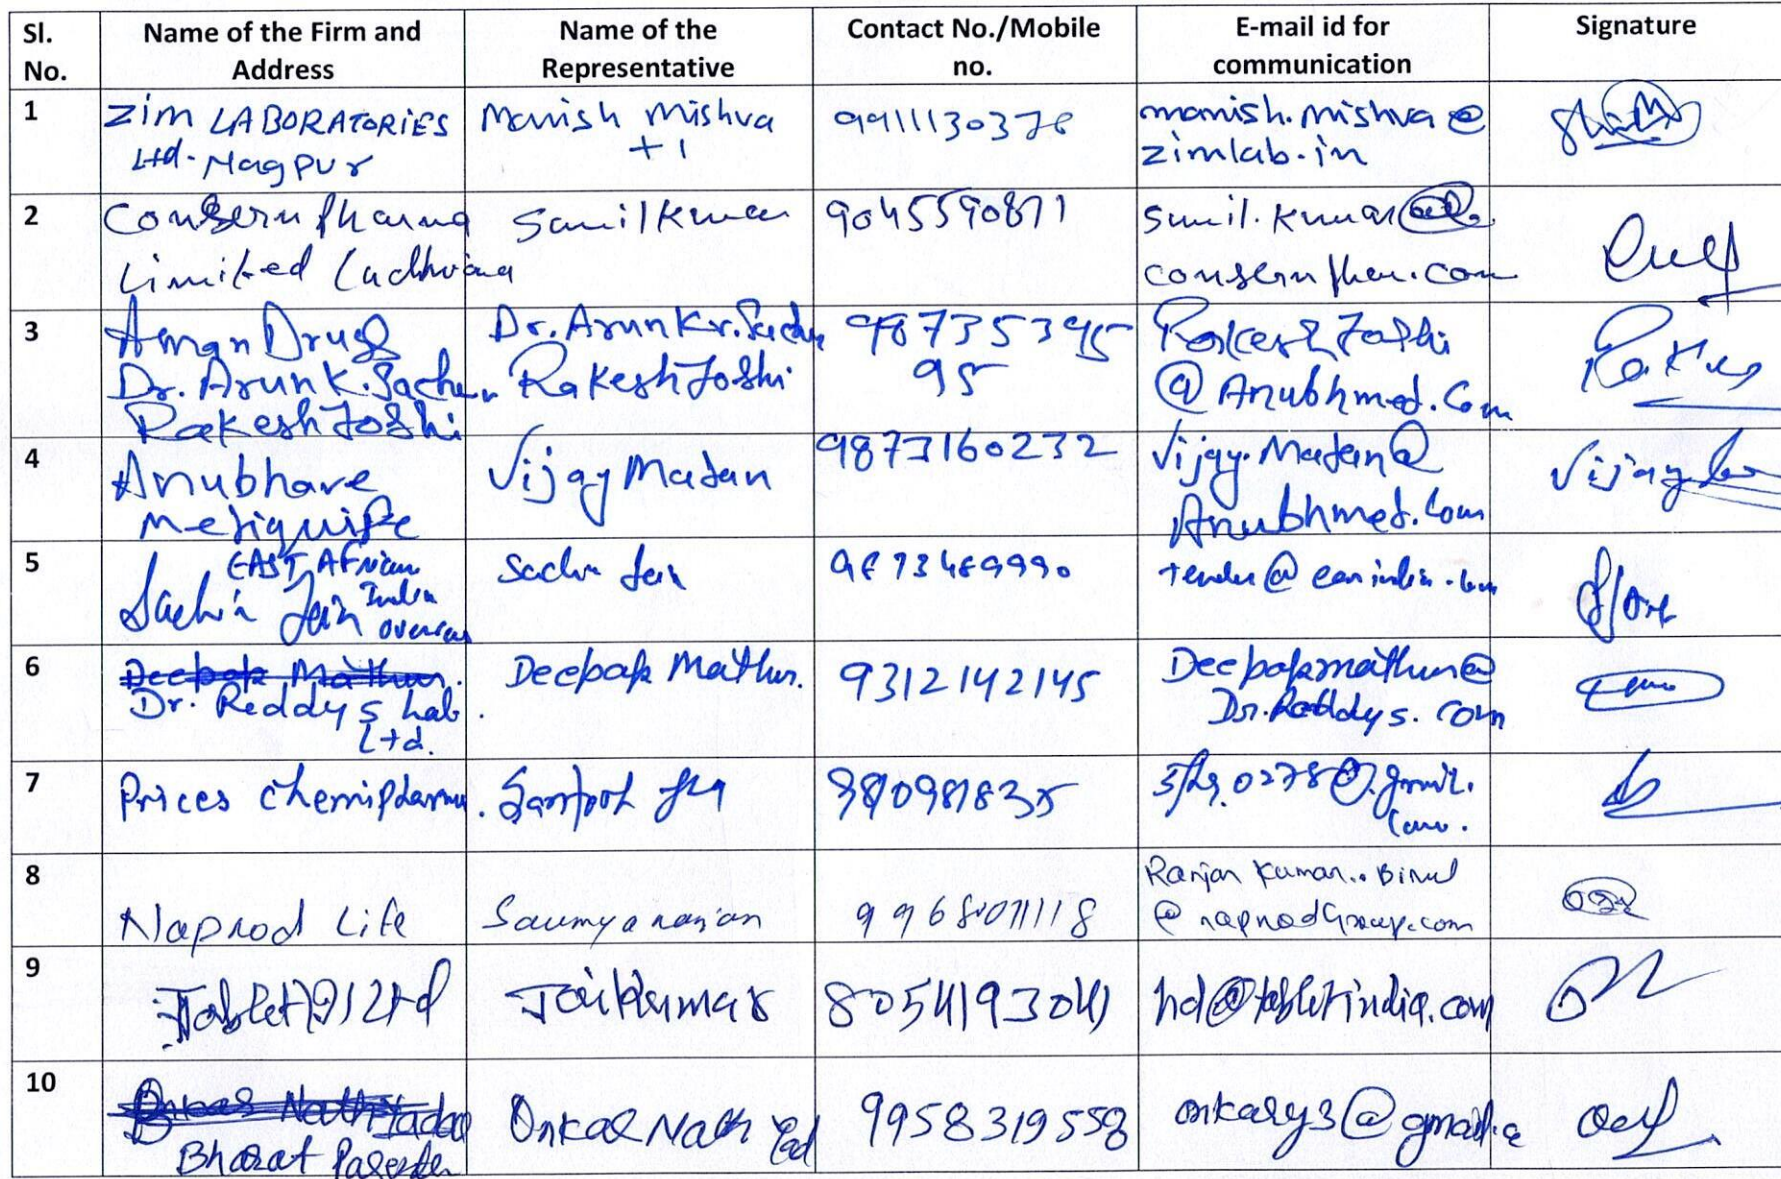 Sl. No. Name of the Firm and Address Name of the Representative Contact No./Mobile no. E-mail id for communication Signature
1 Zim LABORATORIES Ltd. Nagpur Manish Mishra +1 9911130378 manish.mishra@zimlab.in
2 Consern Pharma Limited Ludhiana Sunil Kumar 9045590871 Sunil.Kumar@consernphar.com
3 Aman Drugs Dr. Arun K. Sachen Rakesh Joshi Dr. Arun Kr. Rakesh Joshi 98735395 95 Rakesh Joshi @Anubhmed.Com
4 Anubhave Mediquipe Vijay Madan 9873160232 Vijay.Madan@Anubhmed.Com Vijay
5 EAST African India overseas Sachin Jain Sachin Jain tender@eanindia.com
6 Deepak Mathur. Dr. Reddys Lab. Ltd. Deepak Mathur. 9312142145 Deepakmathur@Dr.Reddys.com
7 Prices chemipharma.
8 Naprod Life Saumyaranjan Ranjan Kumar.. @naprodGroup.com
9 Jai Kumar 8054193041 hd@tabletindia.com
10 Onkar Nath Yadav Bharat Onkar Nath Yad 9958319558